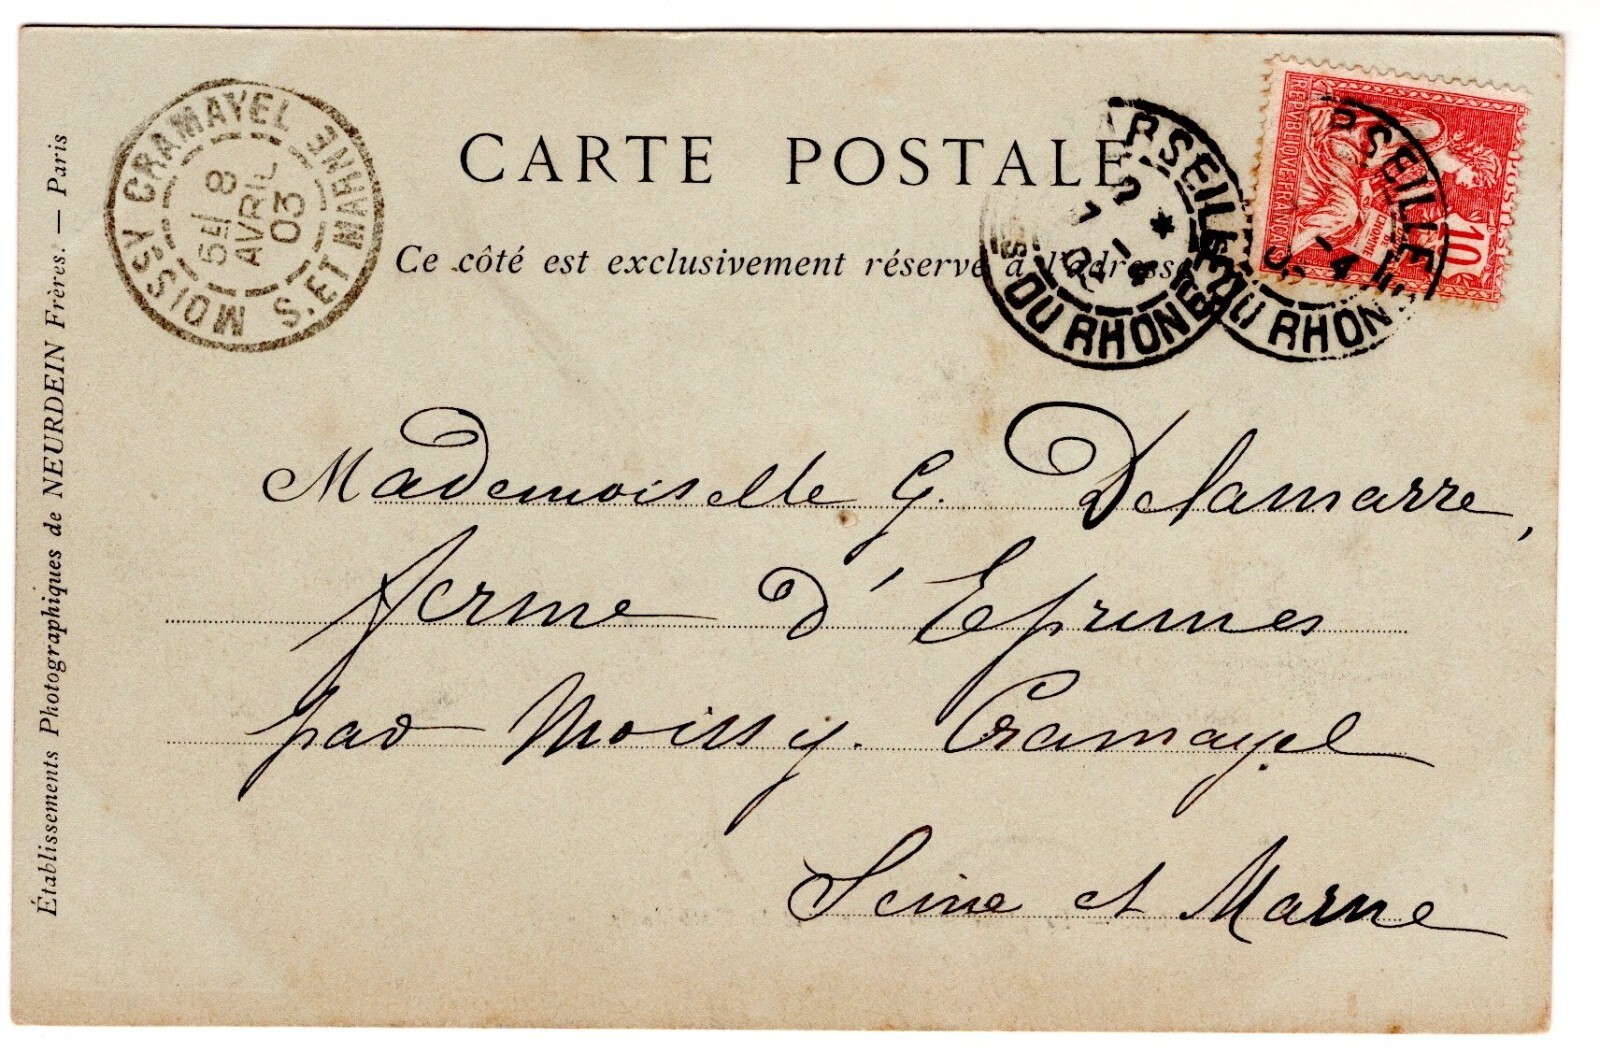 CARTE POSTALE
Ce côté est exclusivement réservé à l'adresse
MOISSY CRAMAYEL
S. ET MARNE
5E 8
AVRIL
03
RSEILLE
DU RHONE
RSEILLE
DU RHON
REPVBLIQVE FRANÇAISE
POSTES
10
Mademoiselle G. Delamarre,
ferme d'Eprunes
par Moissy. Cramayel
Seine et Marne
Établissements Photographiques de NEURDEIN Frères. — Paris